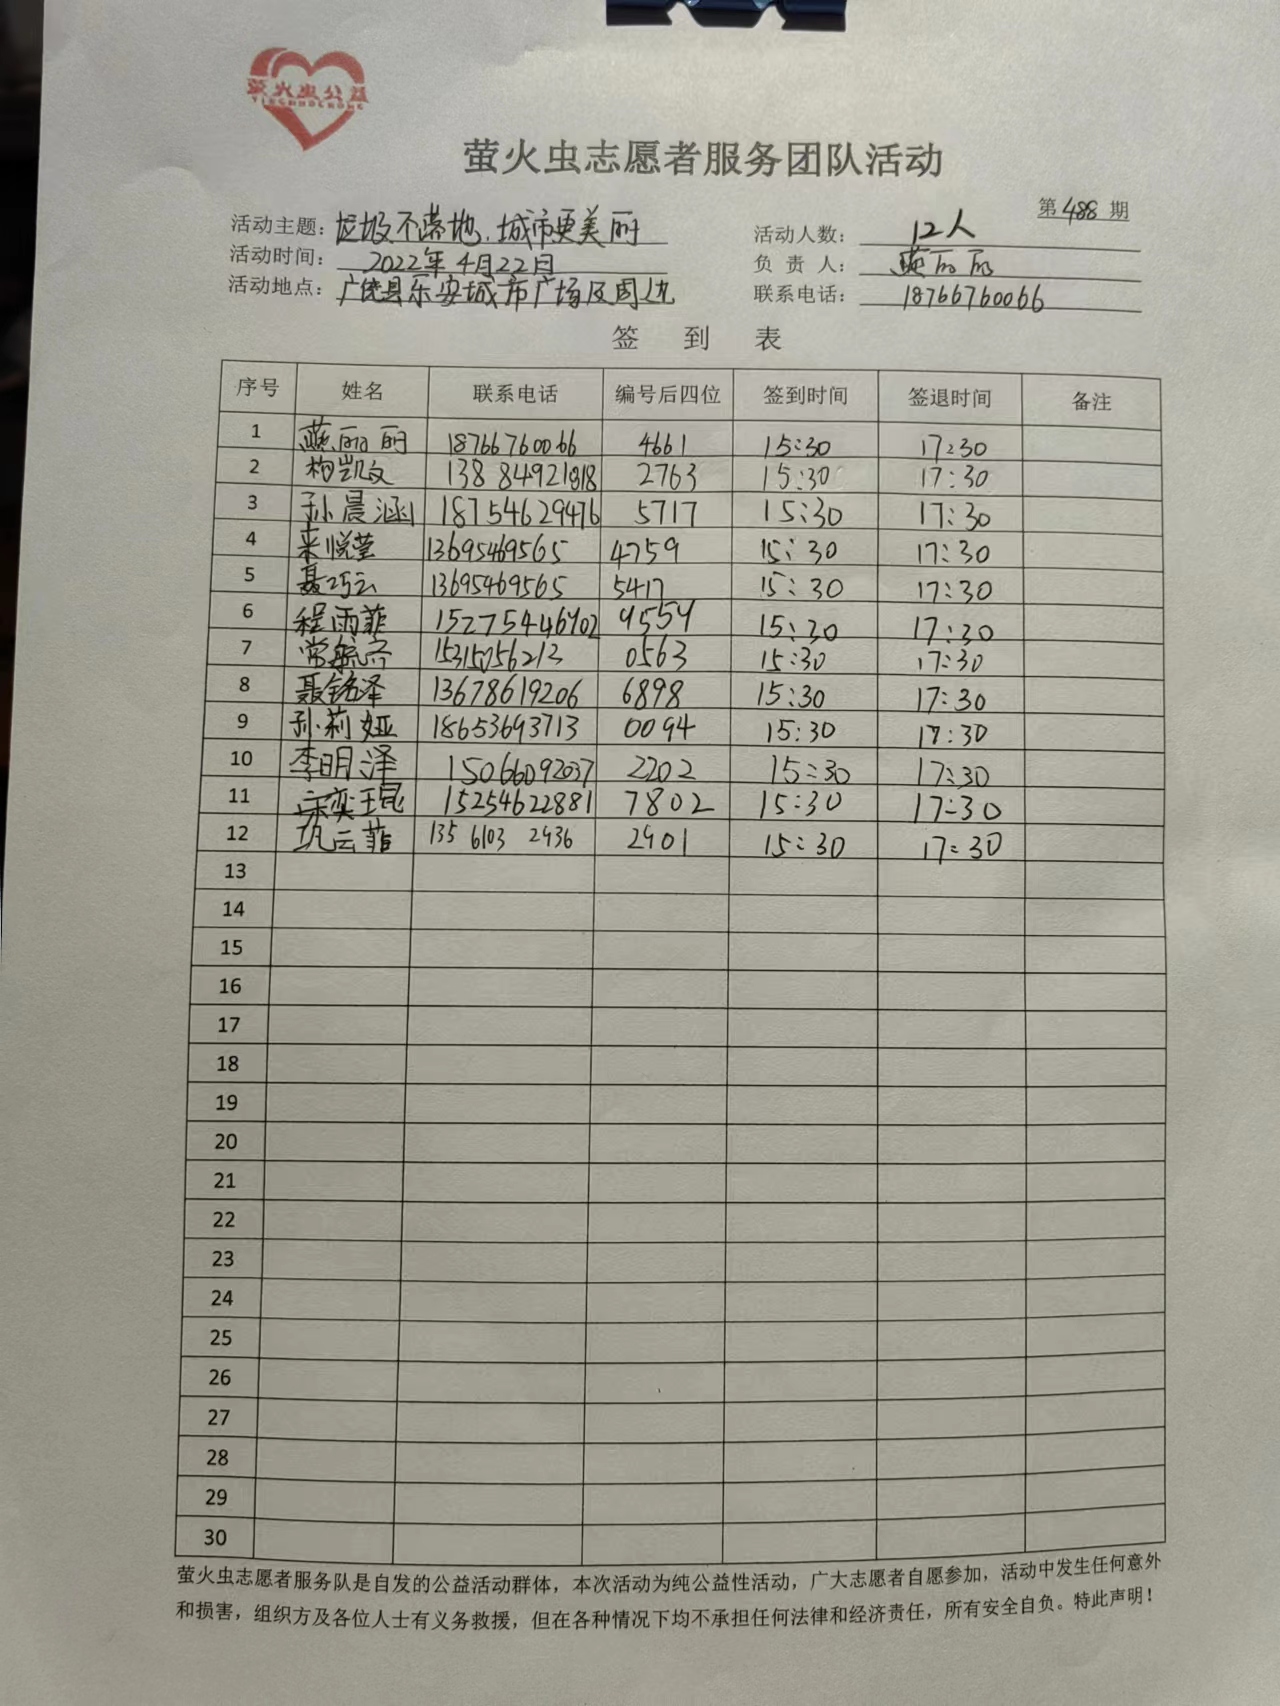 萤火虫公益
YINGHUOCHONG
萤火虫志愿者服务团队活动
第 488 期
活动主题: 垃圾不落地.城市更美丽 活动人数: 12人
活动时间: 2022年4月22日 负 责 人: 燕丽丽
活动地点: 广饶县乐安城市广场及周边 联系电话: 18766760066
签 到 表
序号 姓名 联系电话 编号后四位 签到时间 签退时间 备注
1 燕丽丽 18766760066 4661 15:30 17:30
2 凯文 138 84921818 2763 15:30 17:30
3 孙晨涵 18754629476 5717 15:30 17:30
4 来悦莹 13695469565 4759 15:30 17:30
5 聂巧云 13695469565 5417 15:30 17:30
6 程雨菲 15275446902 9559 15:30 17:30
7 常 0563 15:30 17:30
8 聂铭泽 13678619206 6898 15:30 17:30
9 孙莉娅 18653693713 0094 15:30 17:30
10 李明泽 15066092037 2202 15:30 17:30
11 宋奕琨 15254622881 7802 15:30 17:30
12 巩云菲 135 6103 2936 2901 15:30 17:30
13
14
15
16
17
18
19
20
21
22
23
24
25
26
27
28
29
30
萤火虫志愿者服务队是自发的公益活动群体，本次活动为纯公益性活动，广大志愿者自愿参加，活动中发生任何意外
和损害，组织方及各位人士有义务救援，但在各种情况下均不承担任何法律和经济责任，所有安全自负。特此声明！